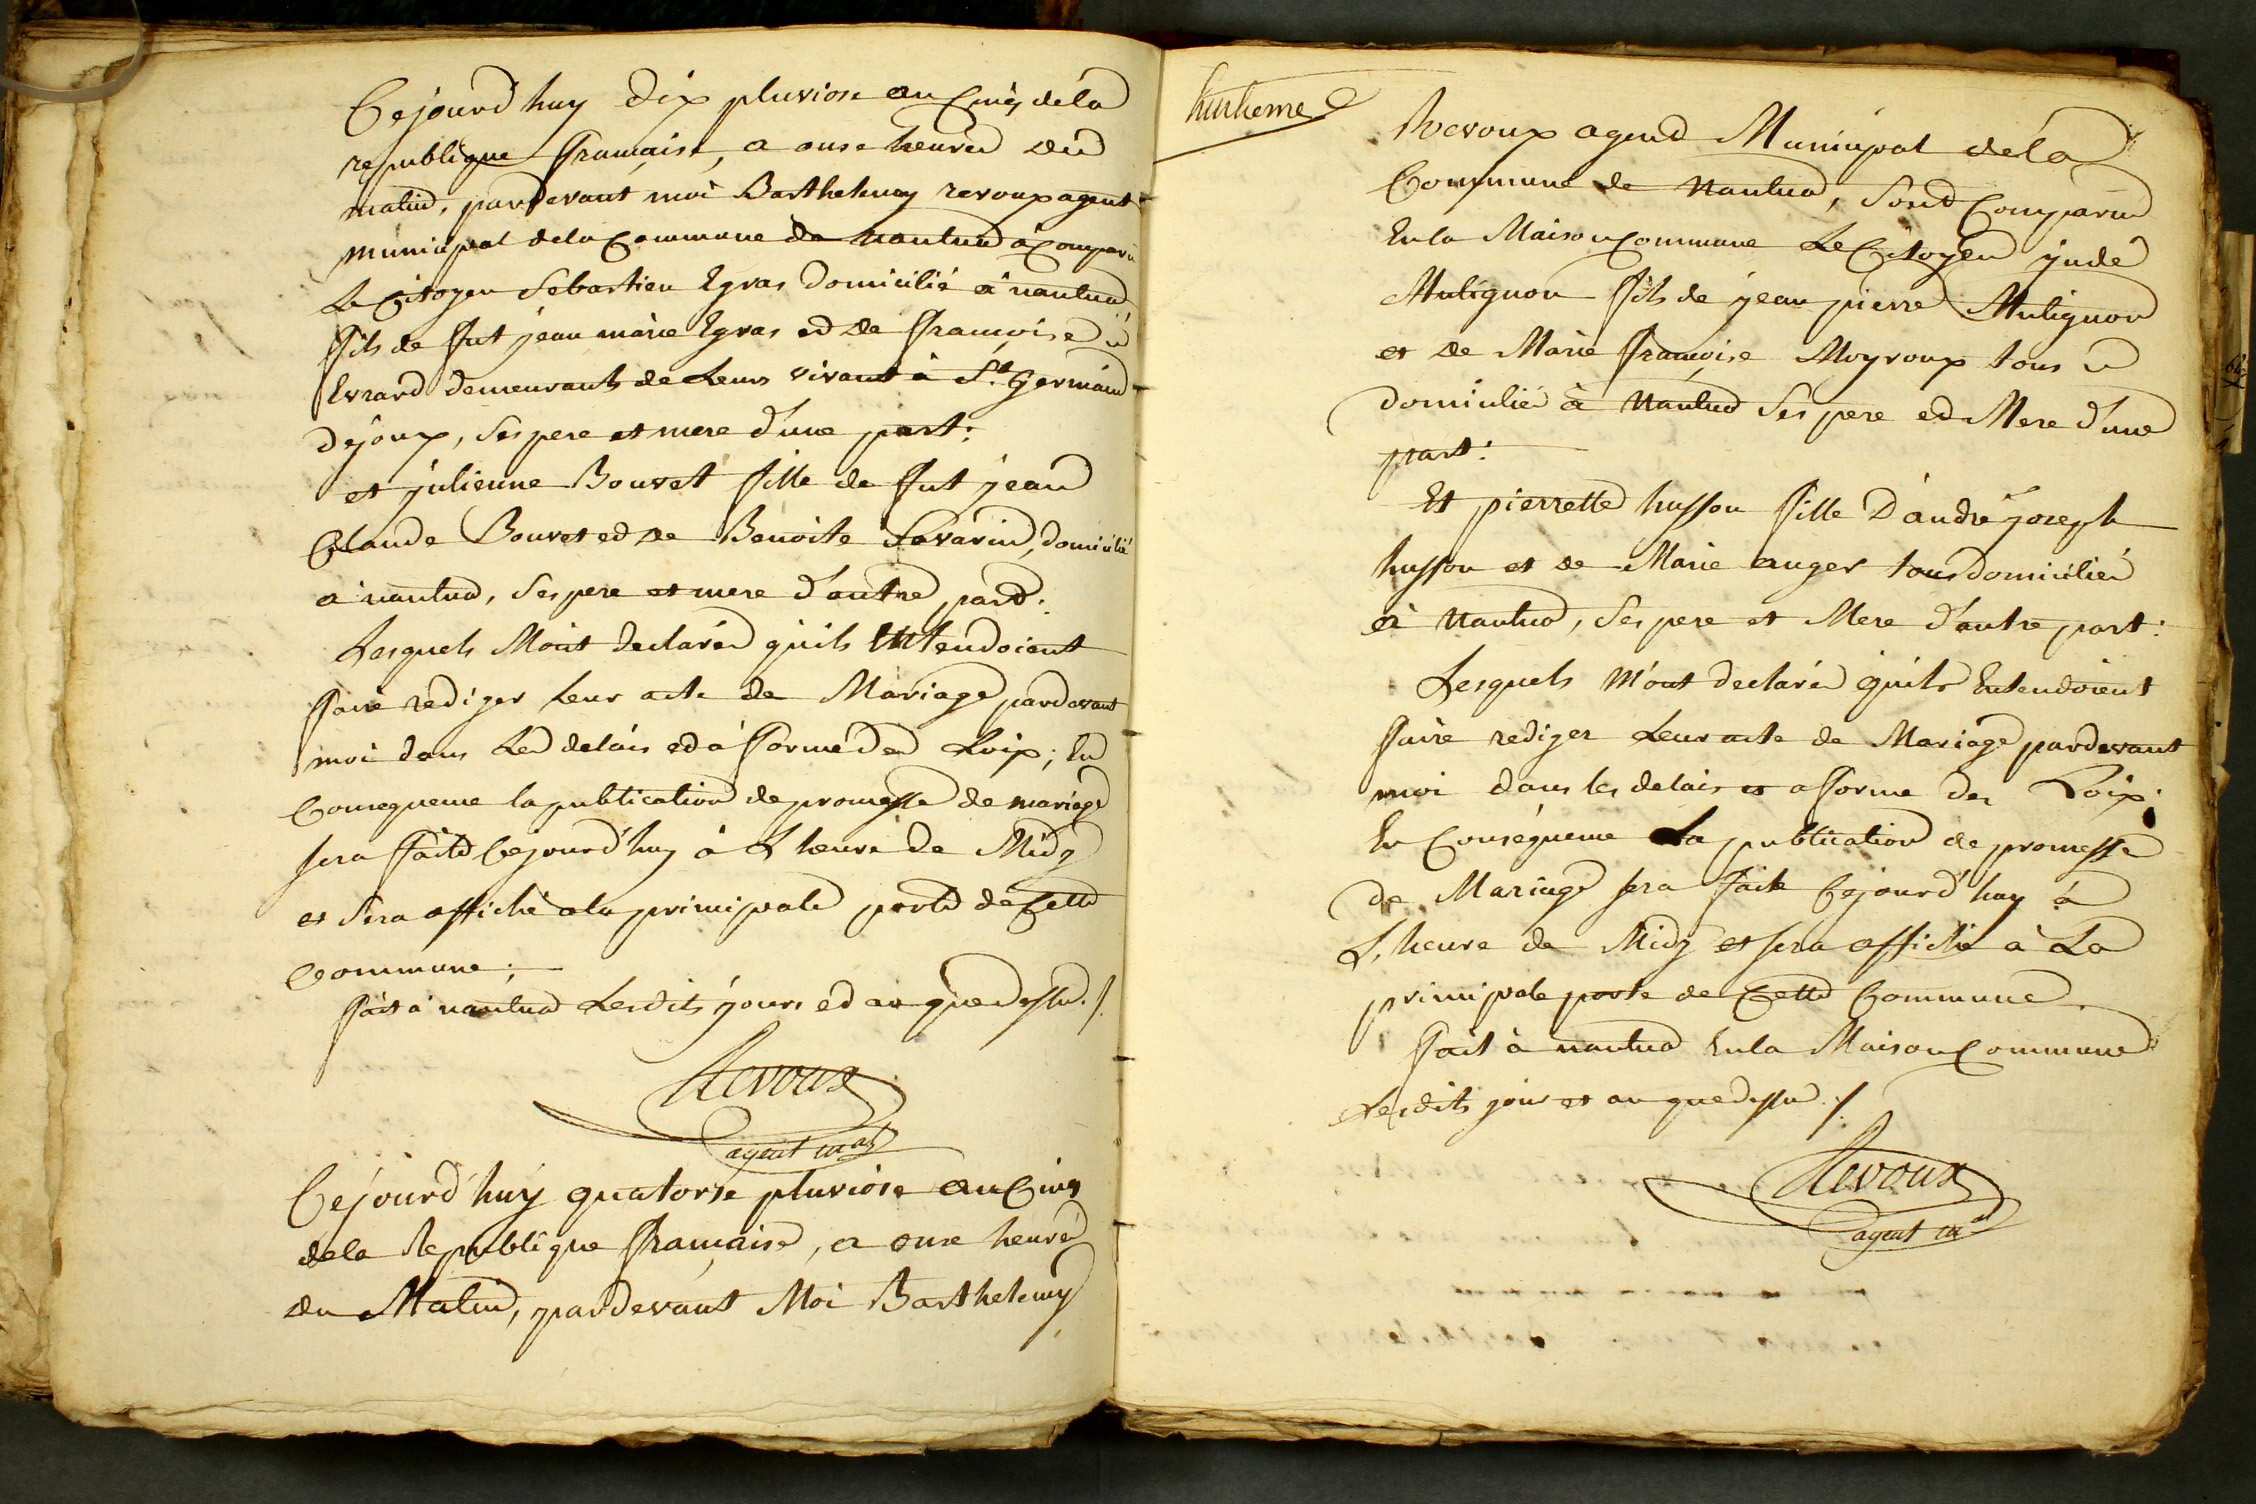 Cejourd'huy dix pluviose an Cinq dela
republique française, a onse heures du
matin, pardevant moi Barthelemy revoux agent
municipal dela Commune de nantua à Comparu
Le Citoyen Sebastien Egras domicilié à nantua
fils de fut jean marie Egras et de françoise
Evrard demeurants de Leurs vivant à St. Germain
dejoux, Ses pere et mere d'une part:
et julienne Bouvet fille de fut jean
Claude Bouvet et de Benoite Savarin, domicilié
à nantua, Ses pere et mere d'autre part:
Lesquels M'ont declarés qu'ils Entendoient
faire rediger Leur acte de Mariage pardevant
moi dans Les delais et à forme des Loix; En
Consequence la publication de promesse de mariage
sera faite Cejourd'huy à L'heure de Midy
et Sera affiché a la principale porte de Cette
Commune;
fait à nantua Lesdits jours et an que dessus./.
Revoux
agent mal
Cejourd'huy quatorse pluviose an Cinq
dela Republique française, a onse heures
du Matin, pardevant Moi Barthelemy
huitieme
Revoux agent Municipal dela
Commune de Nantua, Sont Comparus
En la Maison Commune Le Citoyen jude
Mulignon fils de jean pierre Mulignon
et de Marie françoise Moyroux tous
domiciliés à Nantua Ses pere et Mere d'une
part:
Et pierrette husson fille D'andré joseph
husson et de Marie auger tous domiciliés
à Nantua, Ses pere et Mere d'autre part:
Lesquels M'ont declarés qu'ils Entendoient
faire rediger Leur acte de Mariage pardevant
moi dans les delais et a forme des Loix;
En Conséquence La publication de promesse
de Mariage sera faite Cejourd'huy à
L'heure de Midy et sera affiché à La
principale porte de Cette Commune
fait à nantua En la Maison Commune
Lesdits jour et an que dessus./.
Revoux
agent mal